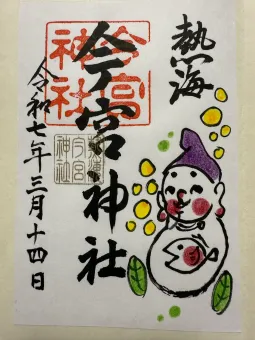 熱海
今宮神社
令和七年三月十四日
今宮
神社